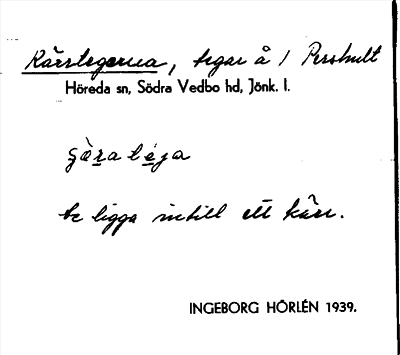 Kärrtegarna, tegar å / Pershult
Höreda sn, Södra Vedbo hd, Jönk. l.
de ligga intill ett kärr.
INGEBORG HÖRLÉN 1939.